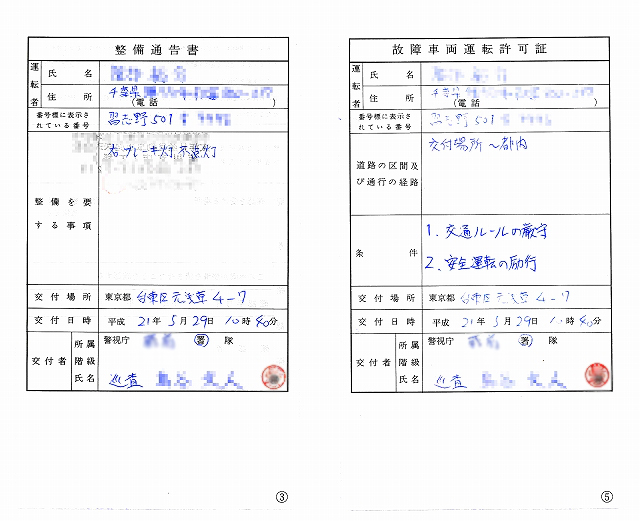 整備通告書
運転者
氏名
住所 千葉県
(電話 )
番号標に表示さ
れている番号
習志野501
整備を要
する事項
右ブレーキ灯 不点灯
交付場所 東京都 台東区元浅草4-7
交付日時 平成 21年 5月 29日 10時 40分
交付者
所属 警視庁 署 隊
階級
氏名 巡査
③
故障車両運転許可証
運転者
氏名
住所 千葉県
(電話 )
番号標に表示さ
れている番号
習志野501
道路の区間及
び通行の経路
交付場所～都内
条件
1. 交通ルールの厳守
2. 安全運転の励行
交付場所 東京都 台東区元浅草4-7
交付日時 平成 21年 5月 29日 10時 40分
交付者
所属 警視庁 署 隊
階級
氏名 巡査
⑤